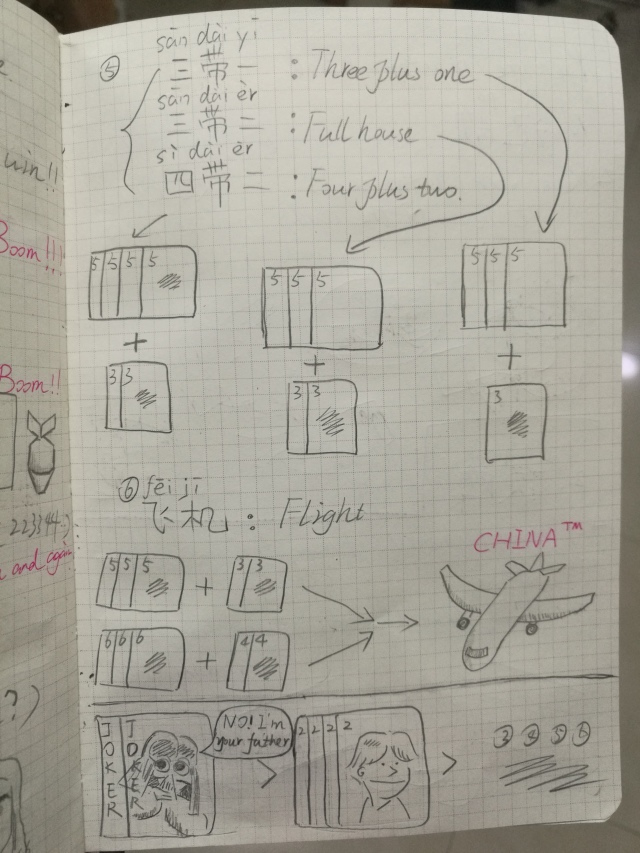 ⑤
sān dài yī
三带一 : Three plus one
sān dài èr
三带二 : Full house
sì dài èr
四带二 : Four plus two.
5 5 5 5
+
3 3
5 5 5
+
3 3
5 5 5
+
3
⑥ fēi jī
飞机 : Flight
5 5 5 + 3 3
6 6 6 + 4 4
CHINA™
JOKER
JOKER
NO! I'm
your father
>
2 2 2 2
>
③ ④ ⑤ ⑥
win!!
Boom!!!
Boom!!
223344:)
and again
?)